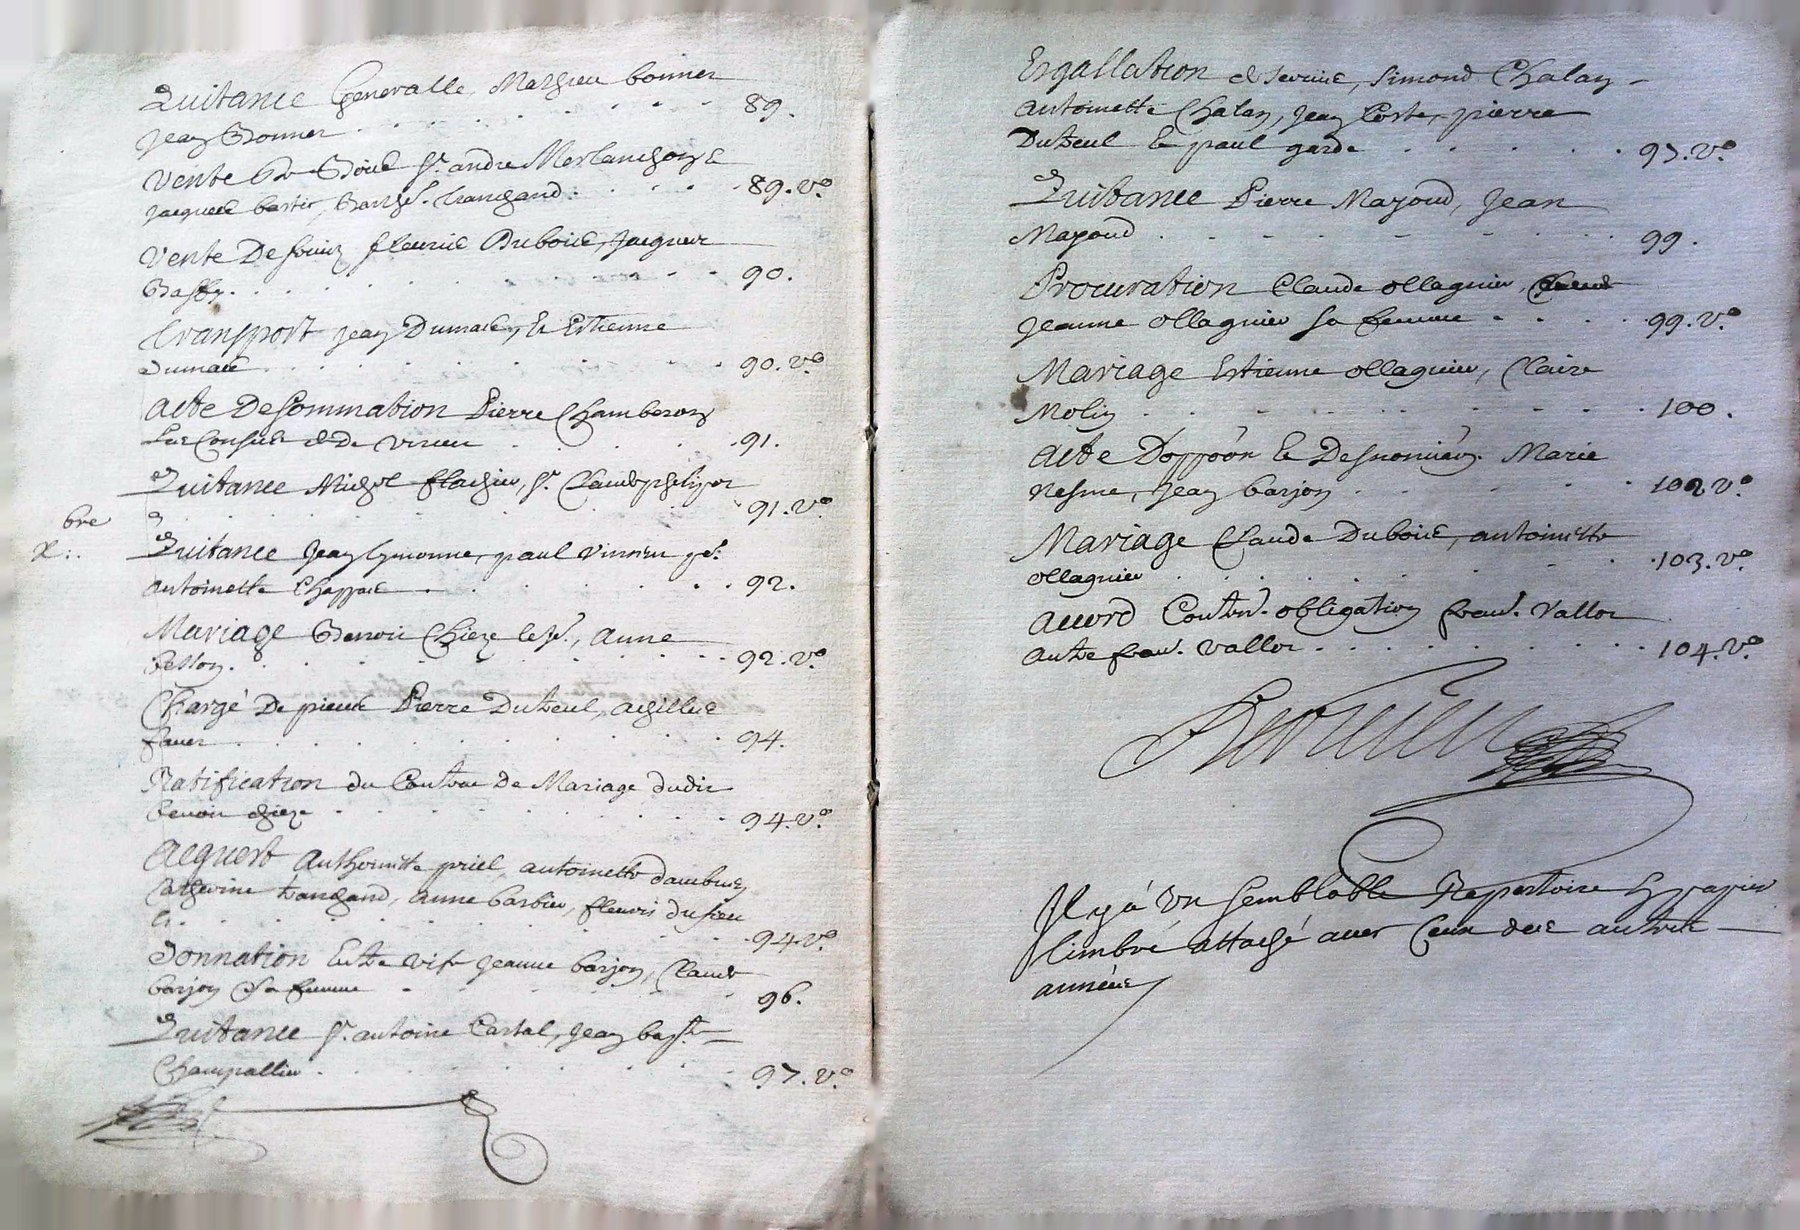 Quitance Generalle Mathieu bonner
Jean Bonner 89.
Vente de Sr. andre Merlanchon &
Jacques 89. vo.
Vente De fruiz fleurie Duboie, Jacques
90.
Transport Jean Dumas, & Estienne
dumas 90. vo.
Acte De sommation Pierre Chamberon
Les Consuls de Virieu 91.
Quitance Michel flachier, Sr. Claude phelipon
91. vo.
bre
X:. Quitance Jean lymonne, paul Virieu
antoinette Chappas 92.
Mariage Benoit Chieze, Anne
besson. 92. vo.
Chargé De pieces Pierre Duteul, achilles
faver 94.
Ratification du Contrac De Mariage dudit
benoit chieze 94. vo.
Acquest Anthoinette priel, antoinette
Catherine, anne barbier, fleurie
94. vo.
Donnation Entre vifs Jeanne barjon, Claude
barjon sa femme 96.
Quitance Sr. antoine Cartal, Jean bapte
Champallier 97. vo.
Esgallation de servis, Simond Chalan
antoinette Chalan, Jean Coste, pierre
Duteul & paul garde 97. vo.
Quitance Pierre Mayoud, Jean
Mayoud 99.
Procuration Claude ollagnier,
Jeanne ollagnier sa femme 99. vo.
Mariage Estienne ollagnier, Claire
Molin 100.
Acte Doppoôn & Marie
Nesme, Jean barjon 102 vo.
Mariage Claude Duboie, antoinette
ollagnier 103. vo.
Accord Conten. obligation fran. Vallon
autre fran. vallon 104. vo.
Il y a Un semblable Repertoire En papier
timbré attaché avec Ceux des autres
années